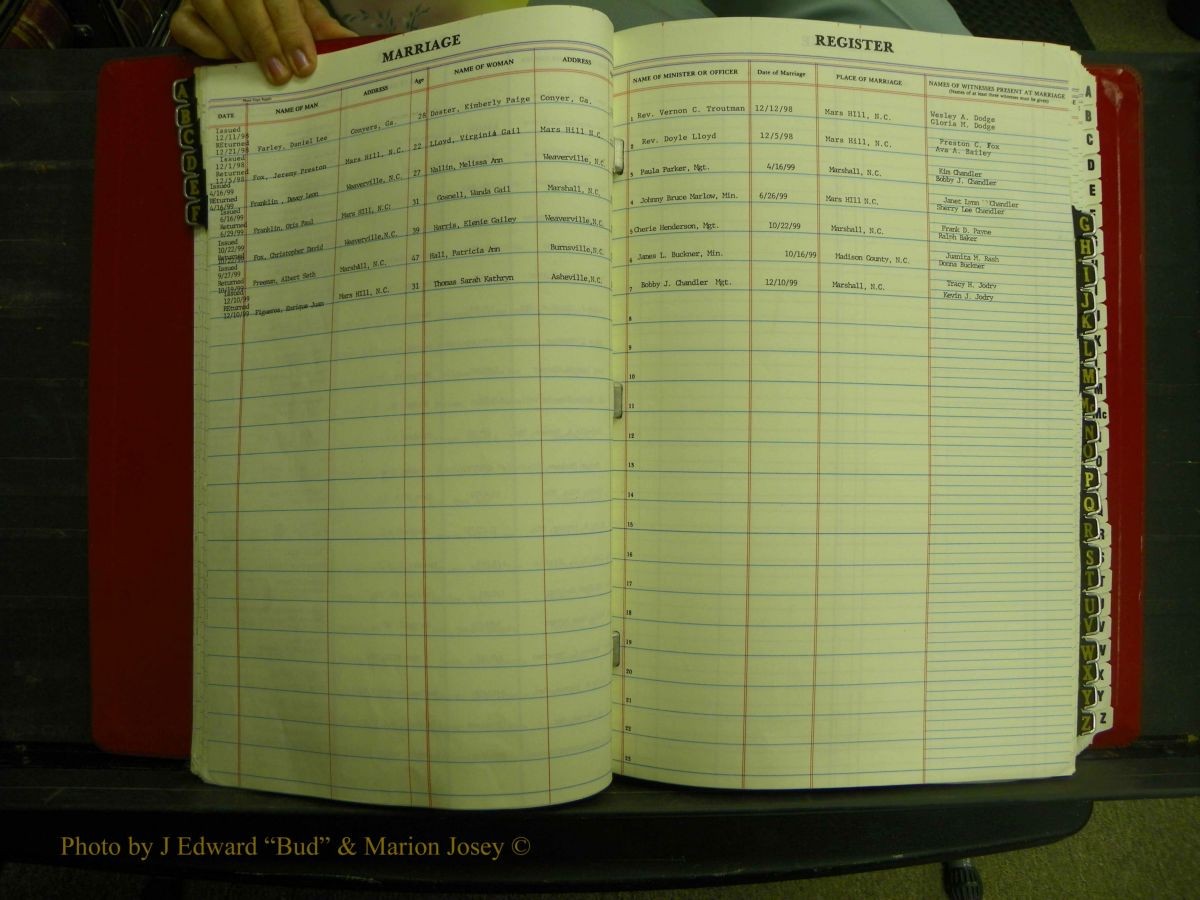 MARRIAGE
DATE NAME OF MAN ADDRESS Age NAME OF WOMAN ADDRESS
Issued
12/11/98
REturned
12/21/98
Farley, Daniel Lee Conyers, Ga. 28 Doster, Kimberly Paige Conyer, Ga.
Issued
12/1/98
Returned
12/5/98
Fox, Jeremy Preston Mars Hill, N.C. 22 Lloyd, Virginia Gail Mars Hill N.C.
Issued
4/16/99
REturned
4/16/99
Franklin, Davey Leon Weaverville, N.C. 27 Wallin, Melissa Ann Weaverville, N.C.
Issued
6/16/99
Returned
6/29/99
Franklin, Otis Paul Mars Hill, N.C. 31 Gosnell, Wanda Gail Marshall, N.C.
Issued
10/22/99
Returned
10/22/99
Fox, Christopher David Weaverville, N.C. 39 Harris, Elenie Gailey Weaverville, N.C.
Issued
9/27/99
Returned
Freeman, Albert Seth Marshall, N.C. 47 Hall, Patricia Ann Burnsville, N.C.
Issued
12/10/99
REturned
12/10/99
Figueroa, Enrique Juan Mars Hill, N.C. 31 Thomas Sarah Kathryn Asheville, N.C.
REGISTER
NAME OF MINISTER OR OFFICER Date of Marriage PLACE OF MARRIAGE NAMES OF WITNESSES PRESENT AT MARRIAGE
(Names of at least three witnesses must be given)
1 Rev. Vernon C. Troutman 12/12/98 Mars Hill, N.C. Wesley A. Dodge
Gloria M. Dodge
2 Rev. Doyle Lloyd 12/5/98 Mars Hill, N.C. Preston C. Fox
Ava A. Bailey
3 Paula Parker, Mgt. 4/16/99 Marshall, N.C. Kim Chandler
Bobby J. Chandler
4 Johnny Bruce Marlow, Min. 6/26/99 Mars Hill N.C. Janet Lynn Chandler
Sherry Lee Chandler
5 Cherie Henderson, Mgt. 10/22/99 Marshall, N.C. Frank D. Payne
Ralph Baker
6 James L. Buckner, Min. 10/16/99 Madison County, N.C. Juanita M. Rash
Donna Buckner
7 Bobby J. Chandler Mgt. 12/10/99 Marshall, N.C. Tracy H. Jodry
Kevin J. Jodry
8
9
10
11
12
13
14
15
16
17
18
19
20
21
22
23
A
B
C
D
E
F
A
B
C
D
E
G
H
I
J
K
L
M
Mc
N
O
P
Q
R
S
T
U
V
W
X
Y
Z
Photo by J Edward “Bud” & Marion Josey ©